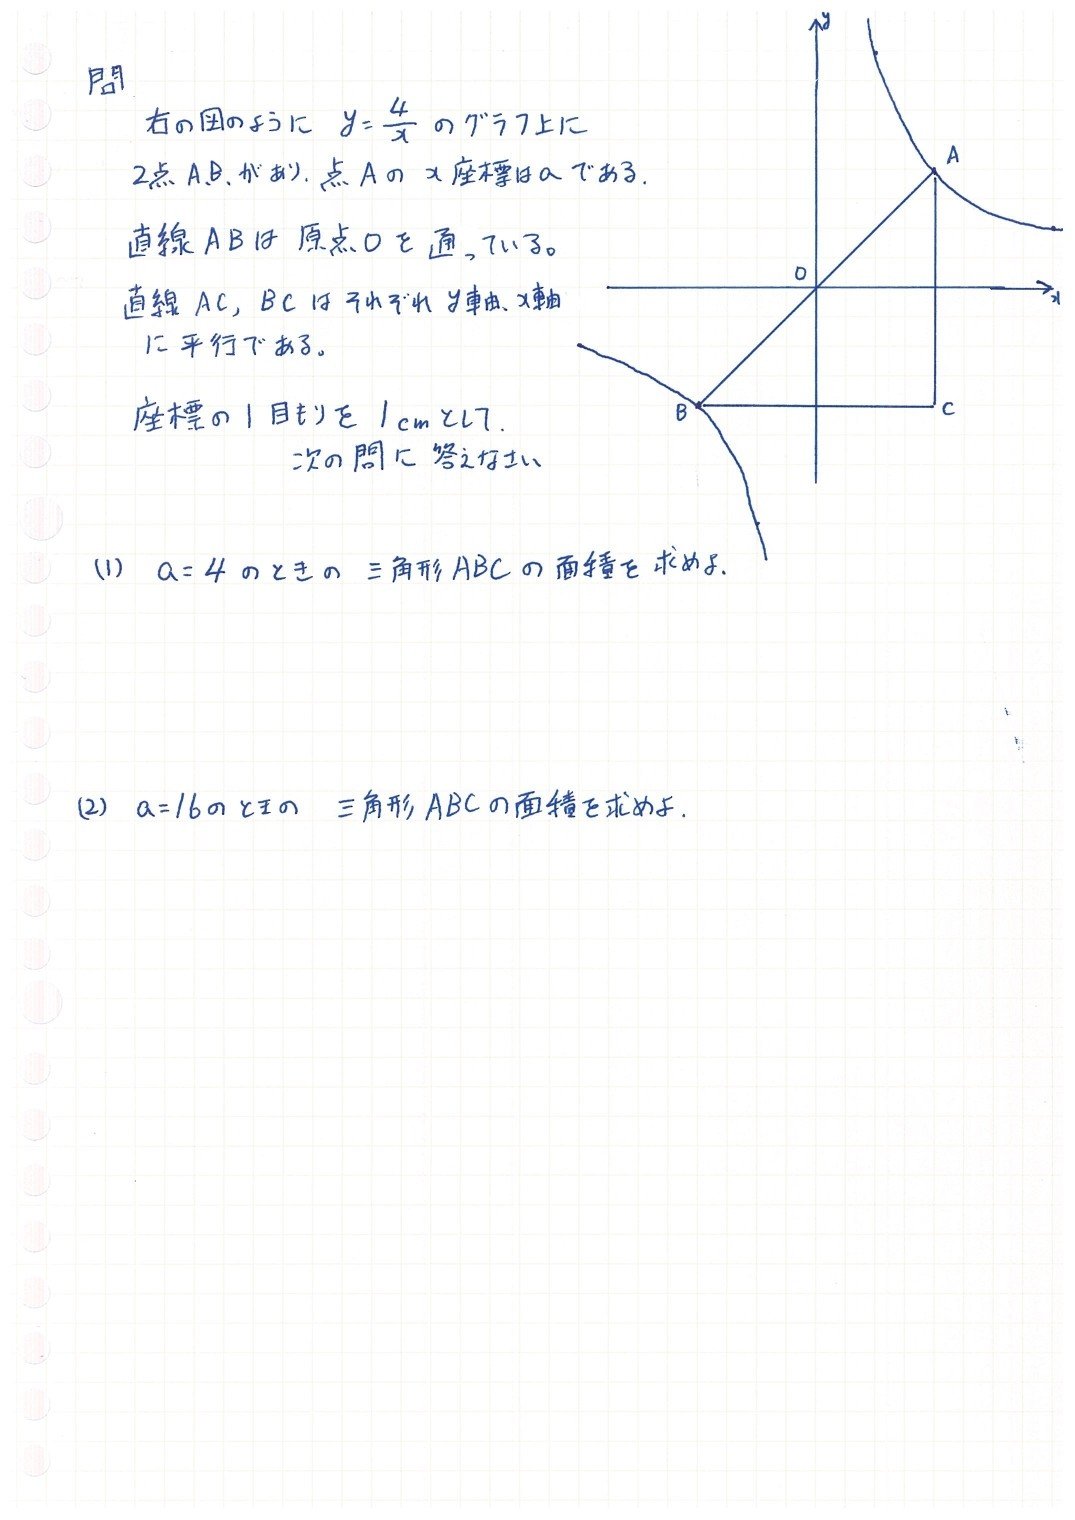 問
右の図のように y=4/x のグラフ上に
2点 A,B,があり、点Aの x座標はaである.
直線ABは 原点Oを通っている。
直線 AC, BC はそれぞれ y軸、x軸
に平行である。
座標の1目もりを 1cmとして.
次の問に 答えなさい
(1) a=4のときの 三角形ABCの面積を求めよ.
(2) a=16のときの 三角形ABCの面積を求めよ.
y
A
O
x
B
C